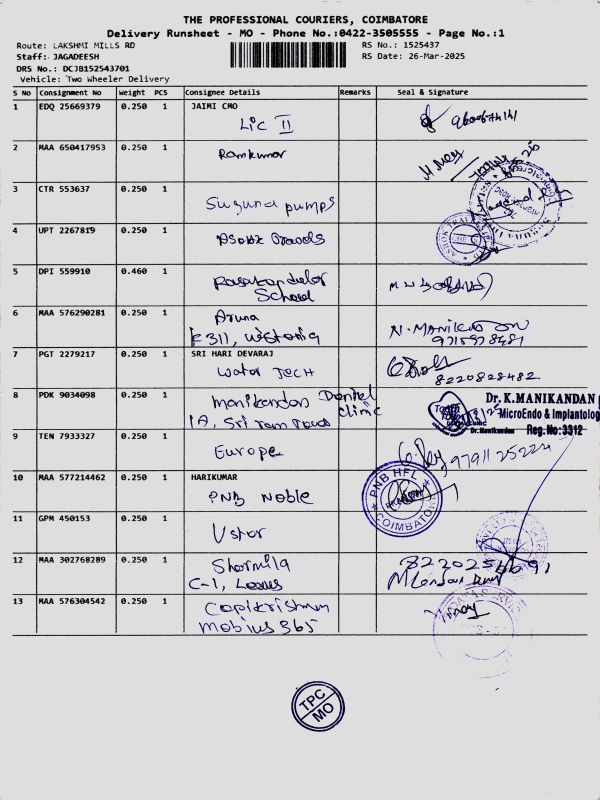 THE PROFESSIONAL COURIERS, COIMBATORE
Delivery Runsheet - MO - Phone No.:0422-3505555 - Page No.:1
Route: LAKSHMI MILLS RD
RS No.: 1525437
Staff: JAGADEESH
RS Date: 26-Mar-2025
DRS No.: DCJB152543701
Vehicle: Two Wheeler Delivery
S No Consignment No Weight PCS Consignee Details Remarks Seal & Signature
1 EDQ 25669379 0.250 1 JAIMI CMO
LIC II
2 MAA 650417953 0.250 1
Ramkumar
3 CTR 553637 0.250 1
Suguna pumps
4 UPT 2267819 0.250 1
Asokk Travels
5 DPI 559910 0.460 1
School
6 MAA 576290281 0.250 1
Aruna
E 311,
N. MANIKANDAN
9715978481
7 PGT 2279217 0.250 1 SRI HARI DEVARAJ
Water TECH
8220828482
8 PDK 9034098 0.250 1
Manikandan Dental
Clinic
1A, Sri Ram
Dr. K.MANIKANDAN
MicroEndo & Implantolog
Dr. Manikandan Reg.No:3312
9 TEN 7933327 0.250 1
Europe
9791125224
10 MAA 577214462 0.250 1 HARIKUMAR
PNB Noble
PNB HFL
COIMBATORE
11 GPM 450153 0.250 1
12 MAA 302768289 0.250 1
Sharmila
C-1,
13 MAA 576304542 0.250 1
Mobius 365
TPC
MO